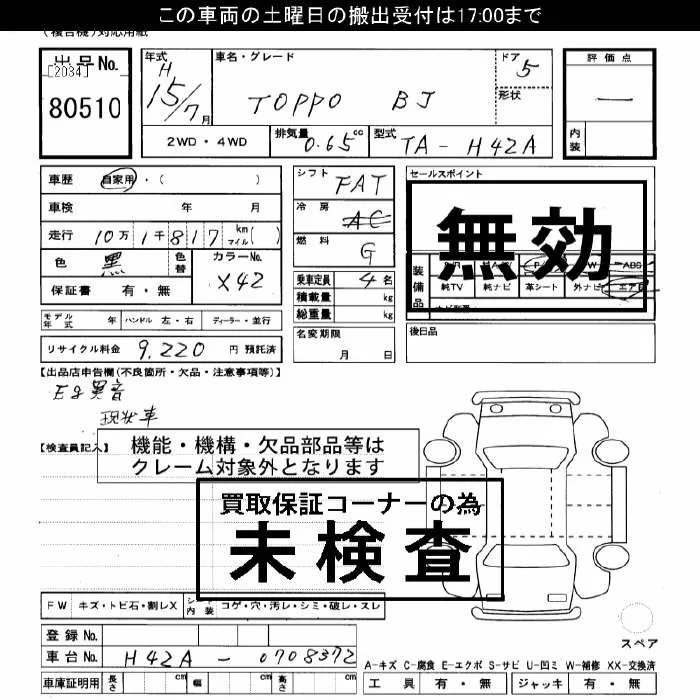 この車両の土曜日の搬出受付は17:00まで
(複合機)対応用紙
出品No.
[2034]
80510
年式 H 15/7 月
車名・グレード TOPPO BJ
ドア 5
形状
評価点
—
内装
2WD・4WD
排気量 0.65 cc
型式 TA-H42A
車歴 自家用・( )
シフト FAT
セールスポイント
車検 年 月
冷房 AC
無効
走行 10万1千817 km マイル( )
燃料 G
色 黒 色替 カラーNo. X42
保証書 有・無
乗車定員 4名
積載量 kg
総重量 kg
装備品 ABS
純TV 純ナビ 革シート 外ナビ エアB
モデル年式 年 ハンドル 左・右 ディーラー・並行
名変期限 月 日
後日品
リサイクル料金 9,220 円 預託済
【出品店申告欄(不良箇所・欠品・注意事項等)】
Eg異音
現状車
【検査員記入】
機能・機構・欠品部品等は
クレーム対象外となります
買取保証コーナーの為
未検査
FW キズ・トビ石・割レX シート内装 コゲ・穴・汚レ・シミ・破レ・スレ
スペア
登録No.
車台No. H42A-0708372
A-キズ C-腐食 E-エクボ S-サビ U-凹ミ W-補修 XX-交換済
車庫証明用 長さ cm 幅 cm 高さ cm
工具 有・無 ジャッキ 有・無